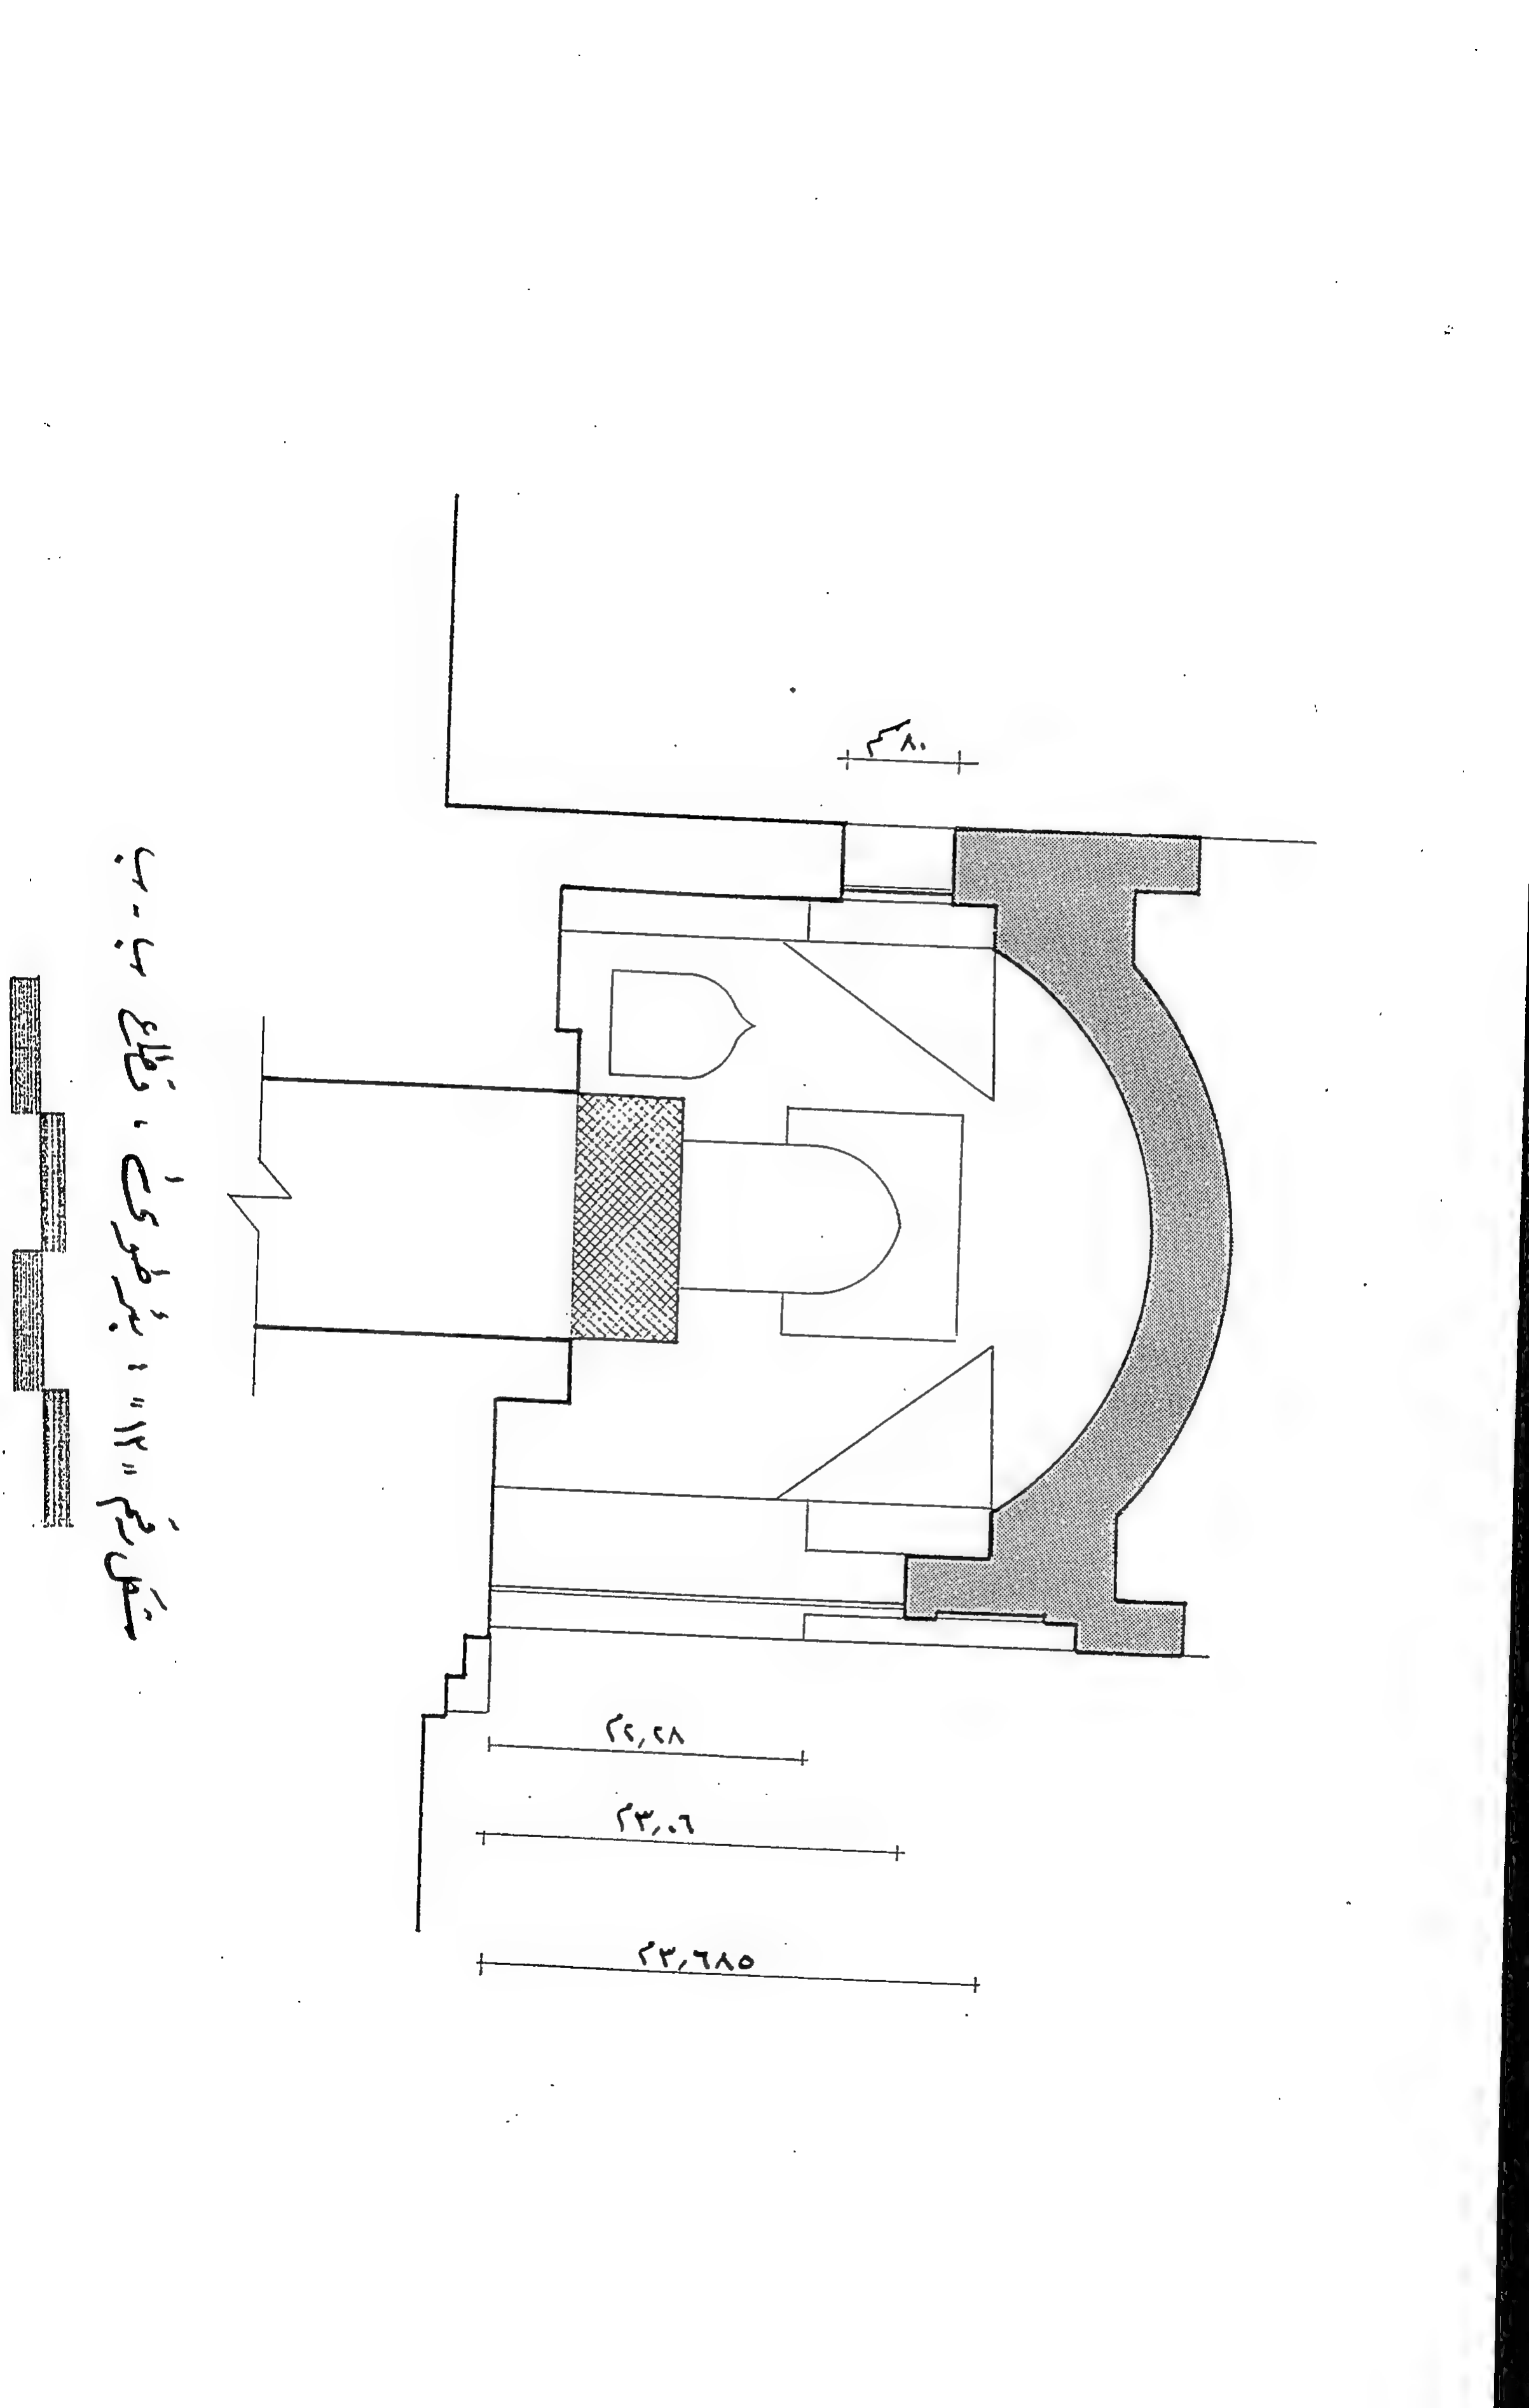 ٨٠سم
٢,٢٨م
٣,٠٦م
٣,٦٨٥م
شكل رقم "١٢" : بئر طوى ، قطاع ب - ب